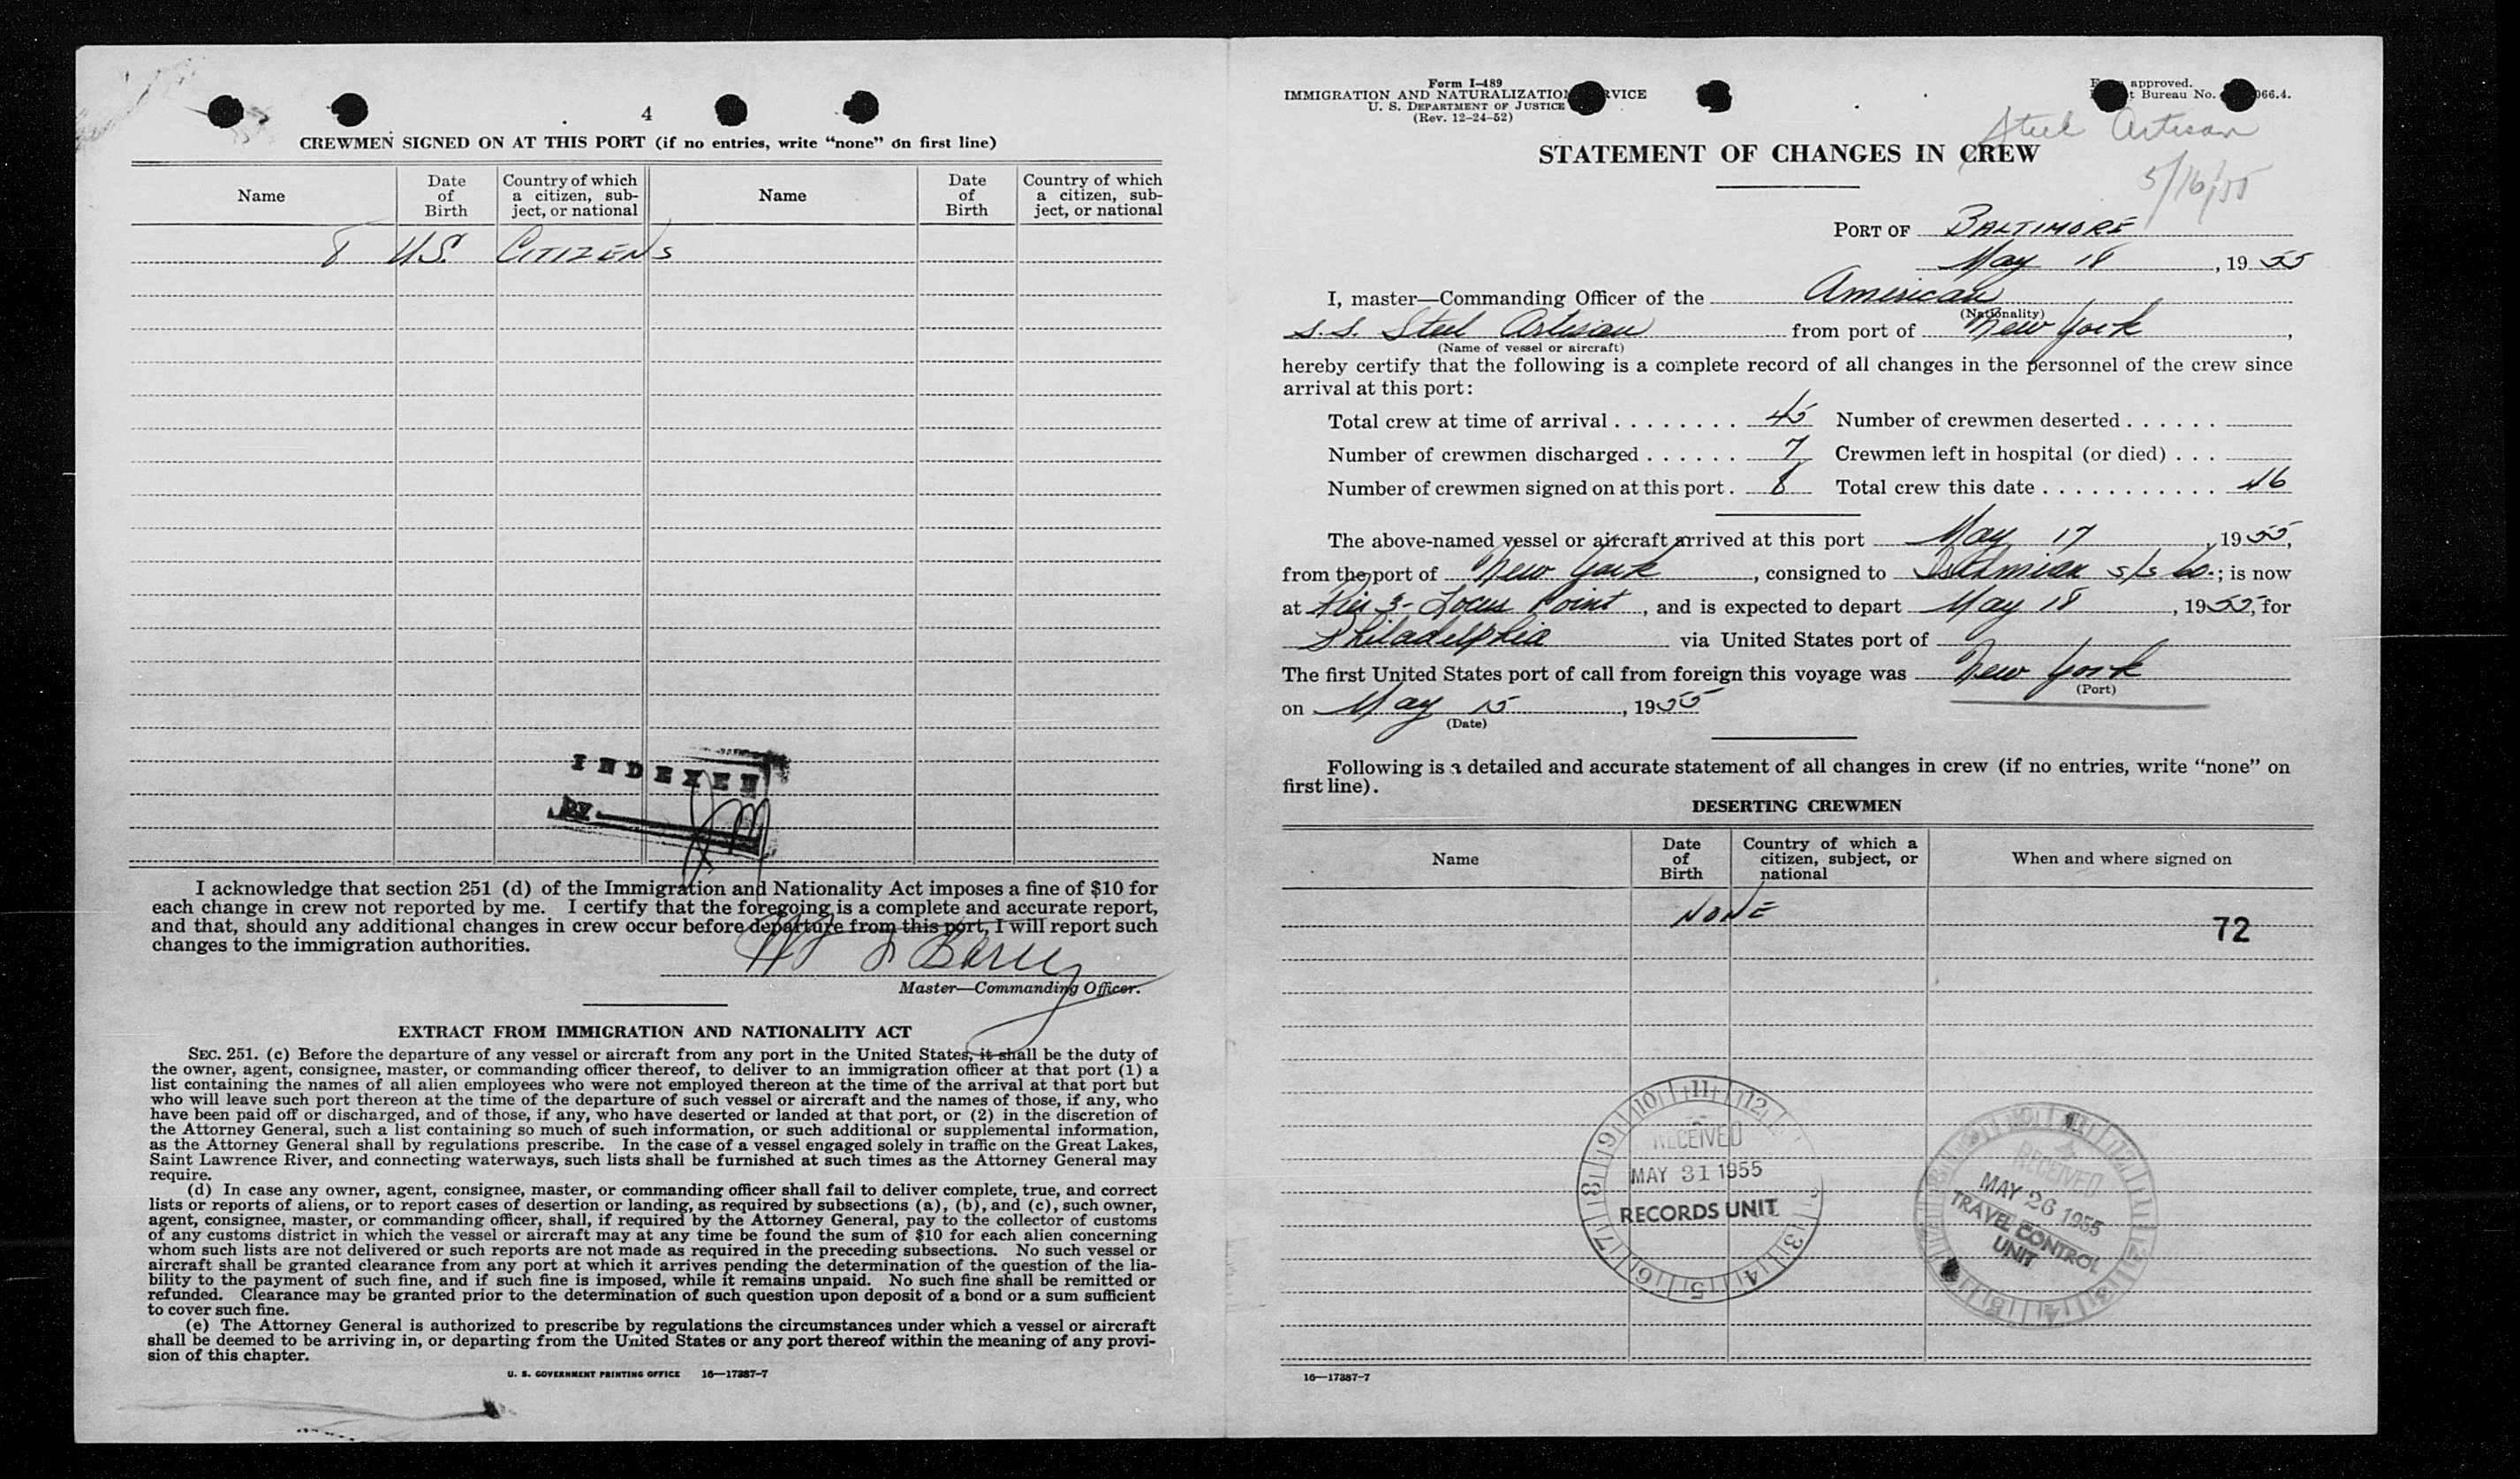 4
CREWMEN SIGNED ON AT THIS PORT (if no entries, write “none” on first line)
Name
Date of Birth
Country of which a citizen, subject, or national
Name
Date of Birth
Country of which a citizen, subject, or national
8 U.S. CITIZENS
INDEXED
BY
I acknowledge that section 251 (d) of the Immigration and Nationality Act imposes a fine of $10 for
each change in crew not reported by me. I certify that the foregoing is a complete and accurate report,
and that, should any additional changes in crew occur before departure from this port, I will report such
changes to the immigration authorities.
Master—Commanding Officer.
EXTRACT FROM IMMIGRATION AND NATIONALITY ACT
SEC. 251. (c) Before the departure of any vessel or aircraft from any port in the United States, it shall be the duty of
the owner, agent, consignee, master, or commanding officer thereof, to deliver to an immigration officer at that port (1) a
list containing the names of all alien employees who were not employed thereon at the time of the arrival at that port but
who will leave such port thereon at the time of the departure of such vessel or aircraft and the names of those, if any, who
have been paid off or discharged, and of those, if any, who have deserted or landed at that port, or (2) in the discretion of
the Attorney General, such a list containing so much of such information, or such additional or supplemental information,
as the Attorney General shall by regulations prescribe. In the case of a vessel engaged solely in traffic on the Great Lakes,
Saint Lawrence River, and connecting waterways, such lists shall be furnished at such times as the Attorney General may
require.
(d) In case any owner, agent, consignee, master, or commanding officer shall fail to deliver complete, true, and correct
lists or reports of aliens, or to report cases of desertion or landing, as required by subsections (a), (b), and (c), such owner,
agent, consignee, master, or commanding officer, shall, if required by the Attorney General, pay to the collector of customs
of any customs district in which the vessel or aircraft may at any time be found the sum of $10 for each alien concerning
whom such lists are not delivered or such reports are not made as required in the preceding subsections. No such vessel or
aircraft shall be granted clearance from any port at which it arrives pending the determination of the question of the lia-
bility to the payment of such fine, and if such fine is imposed, while it remains unpaid. No such fine shall be remitted or
refunded. Clearance may be granted prior to the determination of such question upon deposit of a bond or a sum sufficient
to cover such fine.
(e) The Attorney General is authorized to prescribe by regulations the circumstances under which a vessel or aircraft
shall be deemed to be arriving in, or departing from the United States or any port thereof within the meaning of any provi-
sion of this chapter.
U. S. GOVERNMENT PRINTING OFFICE 16—17387-7
Form I-489
IMMIGRATION AND NATURALIZATION SERVICE
U. S. DEPARTMENT OF JUSTICE
(Rev. 12-24-52)
approved.
Bureau No. 066.4.
Steel Artisan
5/16/55
STATEMENT OF CHANGES IN CREW
PORT OF BALTIMORE
May 18, 1955
I, master—Commanding Officer of the American
(Nationality)
S.S. Steel Artisan from port of New York,
(Name of vessel or aircraft)
hereby certify that the following is a complete record of all changes in the personnel of the crew since
arrival at this port:
Total crew at time of arrival ........ 45 Number of crewmen deserted ......
Number of crewmen discharged ...... 7 Crewmen left in hospital (or died) ...
Number of crewmen signed on at this port. 8 Total crew this date ........... 46
The above-named vessel or aircraft arrived at this port May 17, 1955,
from the port of New York, consigned to Isthmian S/S Co.; is now
at Pier 3- Locus Point, and is expected to depart May 18, 1955, for
Philadelphia via United States port of
The first United States port of call from foreign this voyage was New York
(Port)
on May 15, 1955
(Date)
Following is a detailed and accurate statement of all changes in crew (if no entries, write “none” on
first line).
DESERTING CREWMEN
Name
Date of Birth
Country of which a citizen, subject, or national
When and where signed on
NONE
72
11 12 3 4 5 6 7 8 9 10
RECEIVED
MAY 31 1955
RECORDS UNIT
RECEIVED
MAY 26 1955
TRAVEL CONTROL
UNIT
16—17387-7